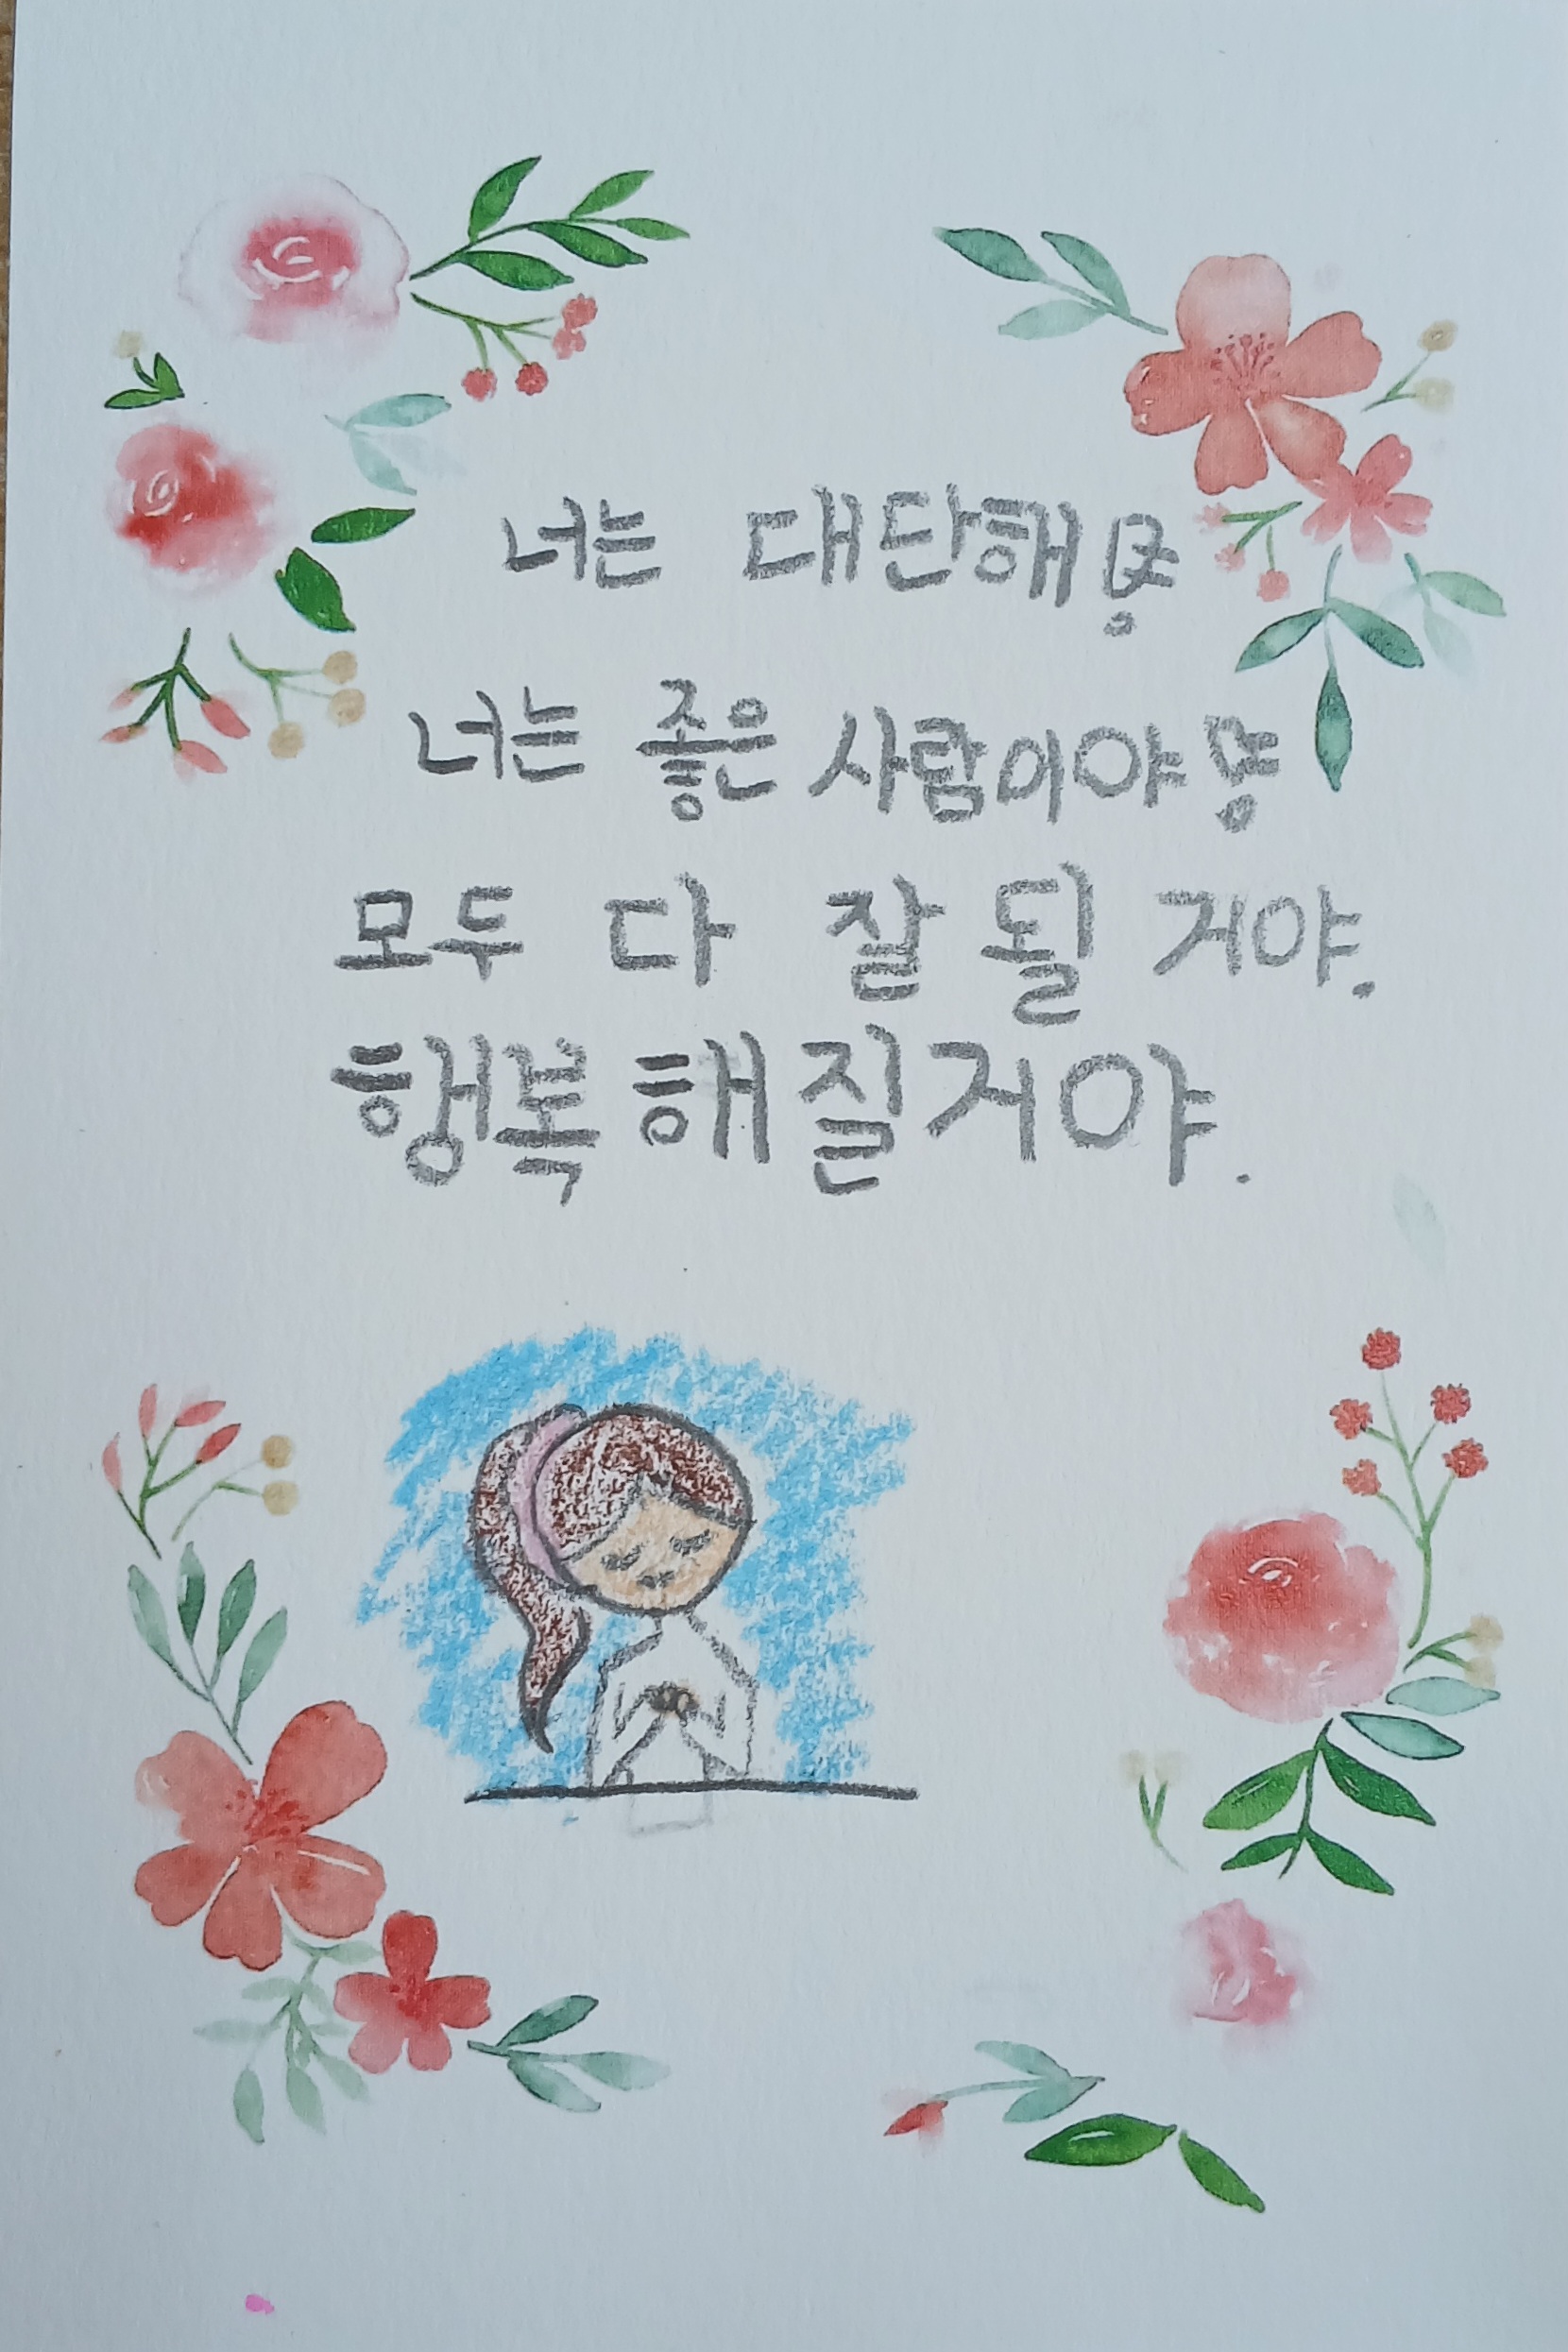 너는 대단해!
너는 좋은 사람이야!
모두 다 잘 될 거야.
행복해질거야.